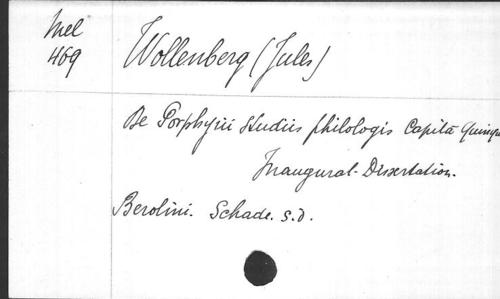 Mel
469
Wollenberg (Jules)
De Porphyrii studiis philologis Capita Quinque
Inaugural-Dissertation.
Berolini. Schade. s.d.